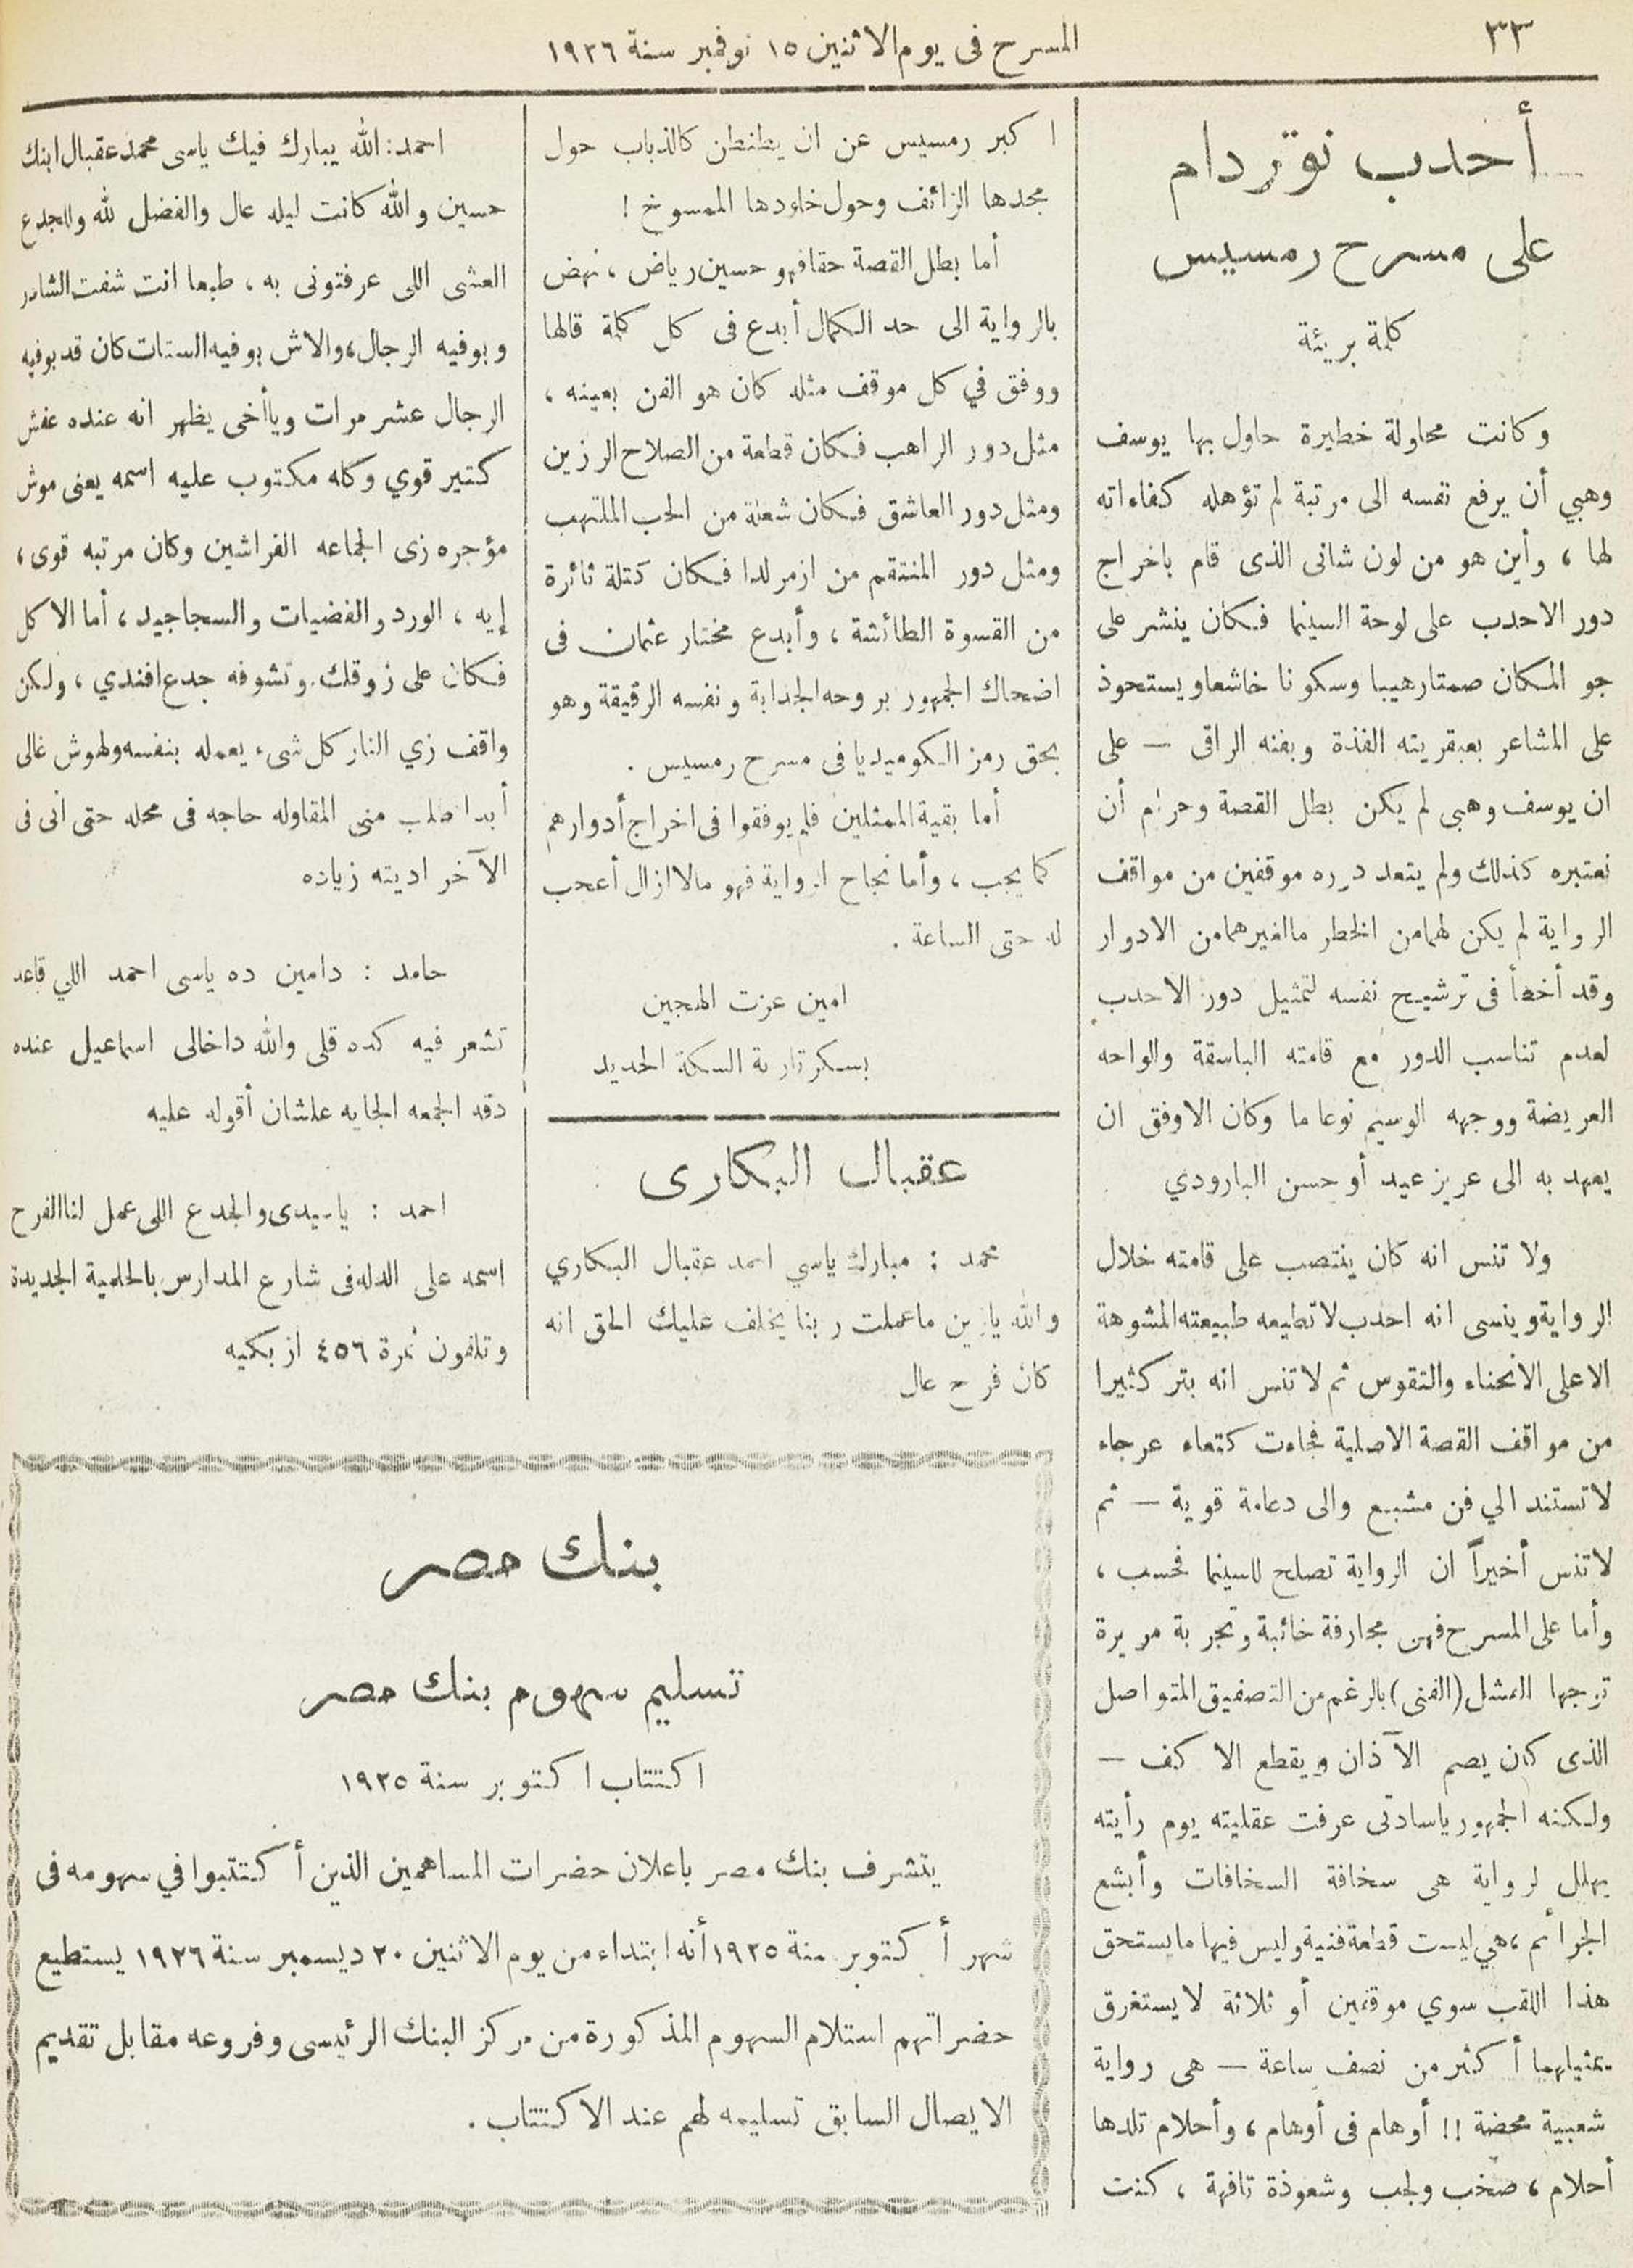 ٣٣
المسرح فى يوم الاثنين ١٥ نوفمبر سنة ١٩٢٦
أحدب نوتردام
على مسرح رمسيس
كلمة بريئة
وكانت محاولة خطيرة حاول بها يوسف
وهبي أن يرفع نفسه الى مرتبة لم تؤهله كفاءاته
لها ، وأين هو من لون شانى الذى قام باخراج
دور الاحدب على لوحة السينما فكان ينشر على
جو المكان صمتا رهيبا وسكونا خاشعا ويستحوذ
على المشاعر بعبقريته الفذة وبفنه الراقى — على
ان يوسف وهبى لم يكن بطل القصة وحرام أن
نعتبره كذلك ولم يتعد دوره موقفين من مواقف
الرواية لم يكن لهما من الخطر ما لغيرهما من الادوار
وقد أخطأ فى ترشيح نفسه لتمثيل دور الاحدب
لعدم تناسب الدور مع قامته الباسقة والواحه
العريضة ووجهه الوسيم نوعا ما وكان الاوفق ان
يعهد به الى عزيز عيد أو حسن البارودي
ولا تنس انه كان ينتصب على قامته خلال
الرواية وينسى انه احدب لا تطيعه طبيعته المشوهة
الا على الانحناء والتقوس ثم لا تنس انه بتر كثيرا
من مواقف القصة الاصلية فجاءت كتعاء عرجاء
لا تستند الي فن مشبع والى دعامة قوية — ثم
لا تنس أخيراً ان الرواية تصلح للسينما فحسب ،
وأما على المسرح فهى مجازفة خائبة وتجربة مريرة
ترجها الممثل (الفنى) بالرغم من التصفيق المتواصل
الذى كان يصم الآذان ويقطع الاكف —
ولكنه الجمهور ياسادتى عرفت عقليته يوم رأيته
يهلل لرواية هى سخافة السخافات وأبشع
الجرائم ، هي ليست قطعة فنية وليس فيها ما يستحق
هذا اللقب سوي موقفين أو ثلاثة لا يستغرق
تمثيلهما أكثر من نصف ساعة — هى رواية
شعبية محضة !! أوهام فى أوهام ، وأحلام تلدها
أحلام ، صخب ولجب وشعوذة تافهة ، كنت
اكبر رمسيس عن ان يطنطن كالذباب حول
مجدها الزائف وحول خلودها الممسوخ !
أما بطل القصة حقا فهو حسين رياض ، نهض
بالرواية الى حد الكمال أبدع فى كل كلمة قالها
ووفق في كل موقف مثله كان هو الفن بعينه ،
مثل دور الراهب فكان قطعة من الصلاح الرزين
ومثل دور العاشق فكان شعلة من الحب الملتهب
ومثل دور المنتقم من ازمرلدا فكان كتلة ثائرة
من القسوة الطائشة ، وأبدع مختار عثمان فى
اضحاك الجمهور بروحه الجذابة ونفسه الرقيقة وهو
بحق رمز الكوميديا فى مسرح رمسيس .
أما بقية الممثلين فلم يوفقوا فى اخراج أدوارهم
كما يجب ، وأما نجاح الرواية فهو مالا ازال أعجب
له حتى الساعة .
امين عزت الهجين
بسكرتارية السكة الحديد
عقبال البكارى
محمد : مبارك ياسي احمد عقبال البكاري
والله يازين ماعملت ربنا يخلف عليك الحق انه
كان فرح عال
احمد : الله يبارك فيك ياسى محمد عقبال ابنك
حسين والله كانت ليله عال والفضل لله وللجدع
العشى اللى عرفتونى به ، طبعا انت شفت الشادر
وبوفيه الرجال ، والاش بوفيه الستات كان قد بوفيه
الرجال عشر مرات ويأخى يظهر انه عنده عفش
كتير قوي وكله مكتوب عليه اسمه يعنى موش
مؤجره زى الجماعه الفراشين وكان مرتبه قوى ،
إيه ، الورد والفضيات والسجاجيد ، أما الاكل
فكان على زوقك. وتشوفه جدع افندي ، ولكن
واقف زي النار كل شىء يعمله بنفسه ولهوش غالى
أبدا طلب منى المقاوله حاجه فى محله حتى انى فى
الآخر اديته زياده
حامد : دامين ده ياسى احمد اللي قاعد
تشعر فيه كده قلى والله داخالى اسماعيل عنده
دقه الجمعه الجايه علشان أقوله عليه
احمد : ياسيدى والجدع اللى عمل لنا الفرح
اسمه على الدله فى شارع المدارس بالحلمية الجديدة
وتلفون نمرة ٤٥٦ ازبكيه
بنك مصر
تسليم سهوم بنك مصر
اكتتاب اكتوبر سنة ١٩٢٥
يتشرف بنك مصر باعلان حضرات المساهمين الذين أكتتبوا في سهومه فى
شهر أكتوبر سنة ١٩٢٥ أنه ابتداء من يوم الاثنين ٢٠ ديسمبر سنة ١٩٢٦ يستطيع
حضراتهم استلام السهوم المذكورة من مركز البنك الرئيسى وفروعه مقابل تقديم
الايصال السابق تسليمه لهم عند الاكتتاب .